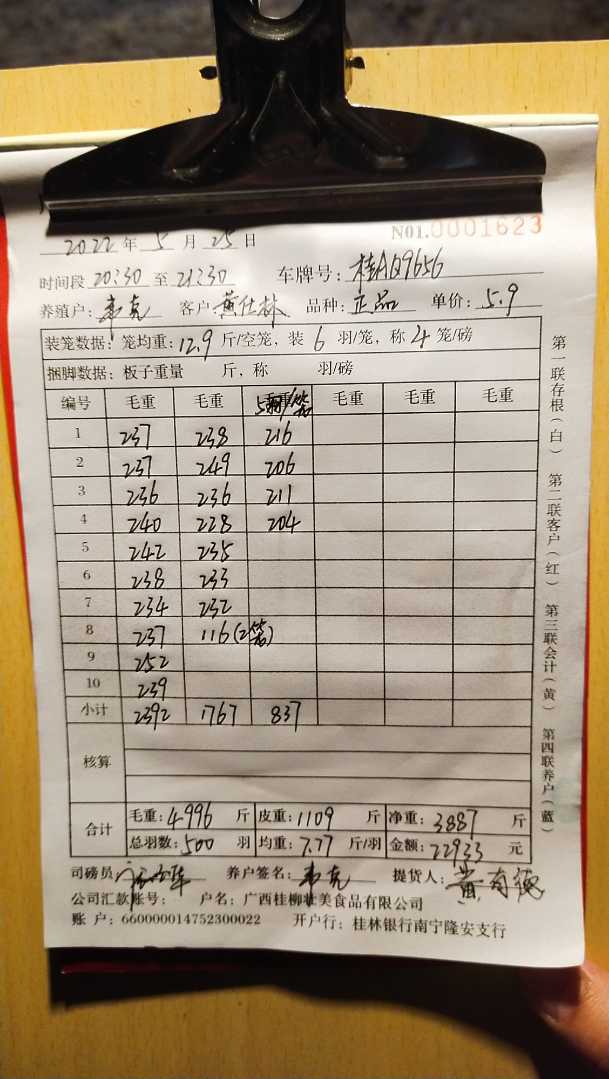 2022 年 5 月 25 日 N01.0001623
时间段 20:30 至 21:30 车牌号: 桂AQ9656
养殖户: 韦克 客户: 黄仕林 品种: 正品 单价: 5.9
装笼数据: 笼均重: 12.9 斤/空笼, 装 6 羽/笼, 称 4 笼/磅
捆脚数据: 板子重量 斤, 称 羽/磅
编号 毛重 毛重 毛重 毛重 毛重
1 237 238 216
2 237 249 206
3 236 236 211
4 240 228 204
5 242 235
6 238 233
7 234 232
8 237 116(2笼)
9 252
10 239
小计 2392 1767 837
核算
合计 毛重: 4996 斤 皮重: 1109 斤 净重: 3887 斤
总羽数: 500 羽 均重: 7.77 斤/羽 金额: 22933 元
司磅员 养户签名: 韦克 提货人: 黄有德
公司汇款账号: 户名: 广西桂柳壮美食品有限公司
账 户: 660000014752300022 开户行: 桂林银行南宁隆安支行
第一联存根(白) 第二联客户(红) 第三联会计(黄) 第四联养户(蓝)